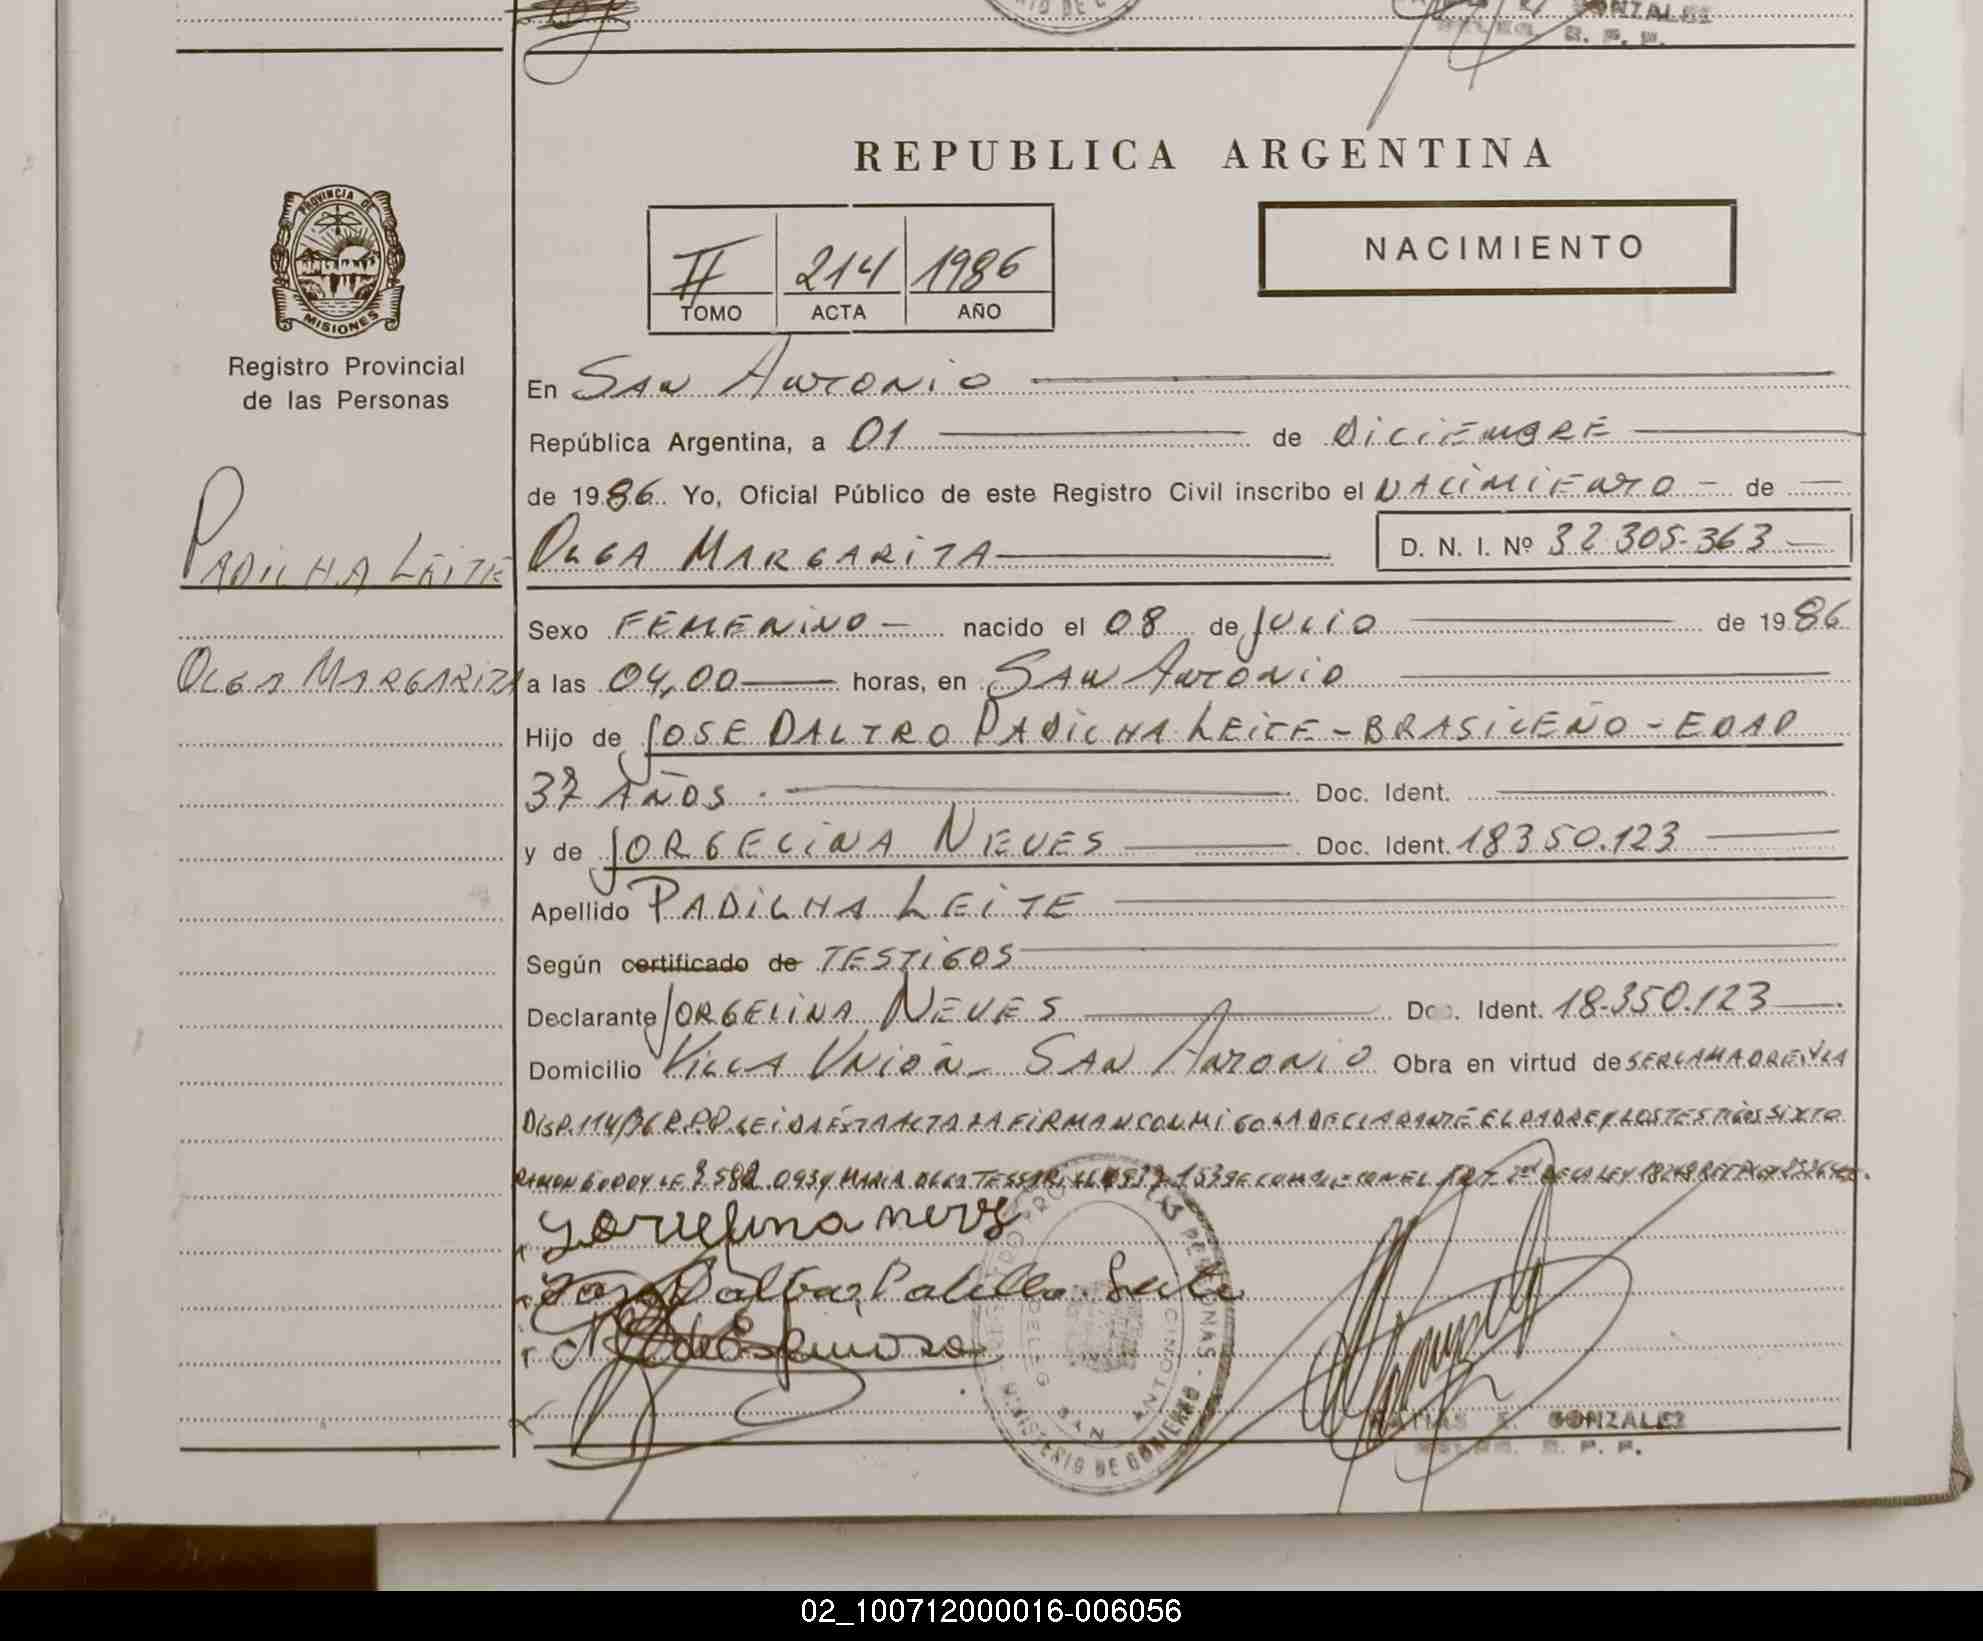 GONZALEZ
R. P. P.
REPUBLICA ARGENTINA
PROVINCIA DE
MISIONES
Registro Provincial
de las Personas
II 214 1986
TOMO ACTA AÑO
NACIMIENTO
En SAN ANTONIO
República Argentina, a 01 de DICIEMBRE
de 1986 Yo, Oficial Público de este Registro Civil inscribo el NACIMIENTO - de
PADILHA LEITE
OLGA MARGARITA
D. N. I. Nº 32.305.363
Sexo FEMENINO - nacido el 08 de JULIO de 1986
OLGA MARGARITA
a las 04,00 horas, en SAN ANTONIO
Hijo de JOSE DALTRO PADILHA LEITE - BRASILEÑO - EDAD
37 AÑOS. Doc. Ident.
y de JORGELINA NEVES Doc. Ident. 18350.123
Apellido PADILHA LEITE
Según certificado de TESTIGOS
Declarante JORGELINA NEVES Doc. Ident. 18.350.123
Domicilio VILLA UNIÓN - SAN ANTONIO Obra en virtud de SER LA MADRE Y LA
DISP. 114/86 R.P.P. LEIDA ÉSTA ACTA LA FIRMAN CONMIGO LA DECLARANTE EL PADRE Y LOS TESTIGOS SIXTO
RAMON GODOY Y MARIA OLGA DE LA LEY
MINISTERIO DE GOBIERNO
SAN ANTONIO
MATIAS E. GONZALEZ
R. P. P.
02_100712000016-006056